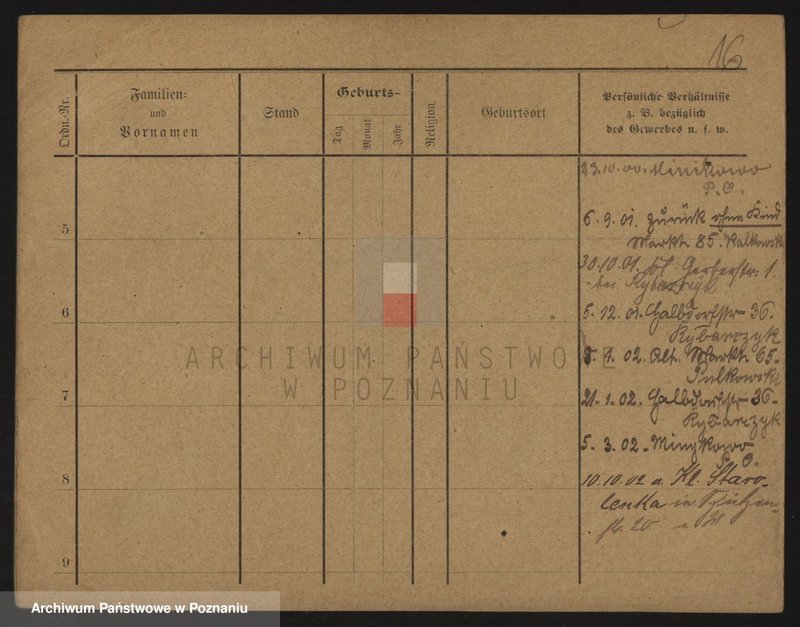 16
Ordn.-Nr.
Familien-
und
Vornamen
Stand
Geburts-
Tag
Monat
Jahr
Religion
Geburtsort
Persönliche Verhältnisse
z. B. bezüglich
des Gewerbes u. s. w.
23.10.00. Minikowo
P. O.
5
6. 9. 01. zurück ohne Kind
Markt 85. Kalkowski
30.10.01. Gerberstr. 1.
bei Rybarczyk
6
5. 12. 01. Halbdorfstr 36.
Rybarczyk
5. 1. 02. Alt. Markt 65.
Pulkowski
7
21. 1. 02. Halbdorfstr 36.
Rybarczyk
5. 3. 02. Minykowo
O.
8
10.10.02 a. Kl. Staro-
lenka in
20
9
ARCHIWUM PAŃSTWOWE
W POZNANIU
Archiwum Państwowe w Poznaniu